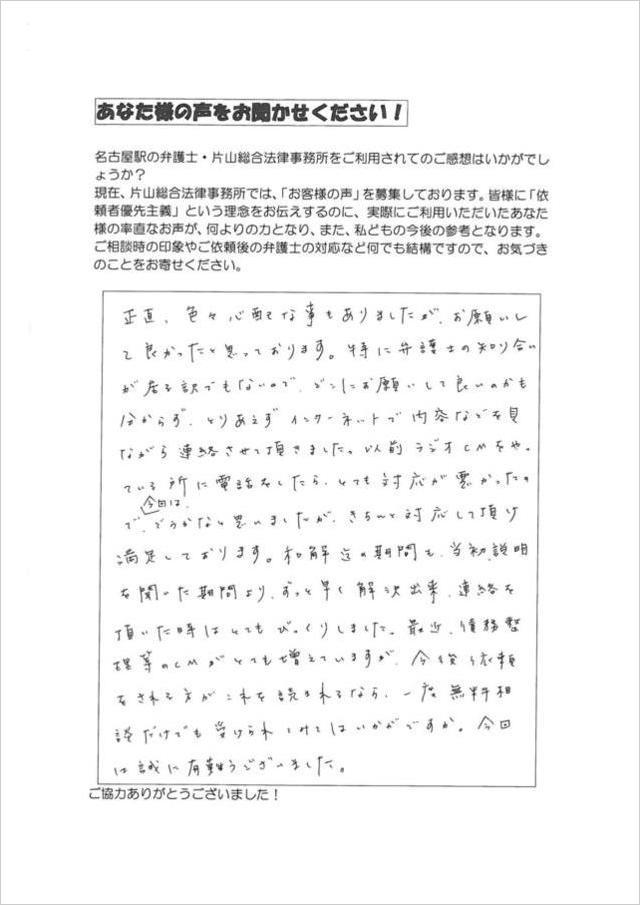 あなた様の声をお聞かせください！
名古屋駅の弁護士・片山総合法律事務所をご利用されてのご感想はいかがでし
ょうか？
現在、片山総合法律事務所では、「お客様の声」を募集しております。皆様に「依
頼者優先主義」という理念をお伝えするのに、実際にご利用いただいたあなた
様の率直なお声が、何よりの力となり、また、私どもの今後の参考となります。
ご相談時の印象やご依頼後の弁護士の対応など何でも結構ですので、お気づき
のことをお寄せください。
正直、色々心配な事もありましたが、お願いし
て良かったと思っております。特に弁護士の知り合い
が居る訳でもないので、どこにお願いして良いのかも
分からず、とりあえずインターネットで内容などを見
ながら連絡させて頂きました。以前ラジオCMをや。
ている所に電話をしたら、とても対応が悪かったの
今回は、
で、どうかなと思いましたが、きちんと対応して頂け
満足しております。和解迄の期間も、当初、説明
を聞いた期間より、ずっと早く解決出来、連絡を
頂いた時はとてもびっくりしました。最近、債務整
理等のCMがとても増えていますが、今後依頼
をされる方がこれを読まれるなら、一度無料相
談だけでも受けられてみてはいかがですか。今回
は誠に有難うございました。
ご協力ありがとうございました！